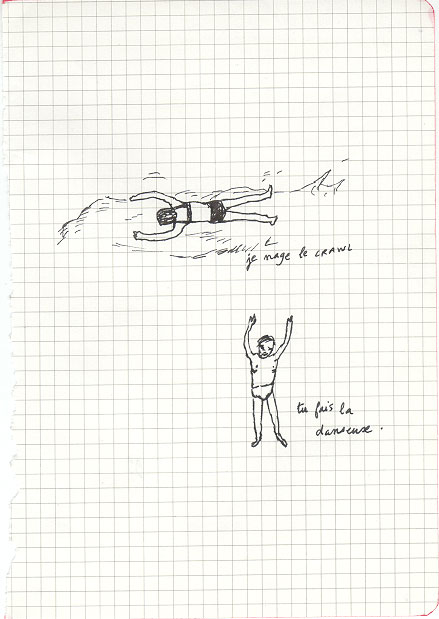 je nage le CRAWL
tu fais la
danseuse.